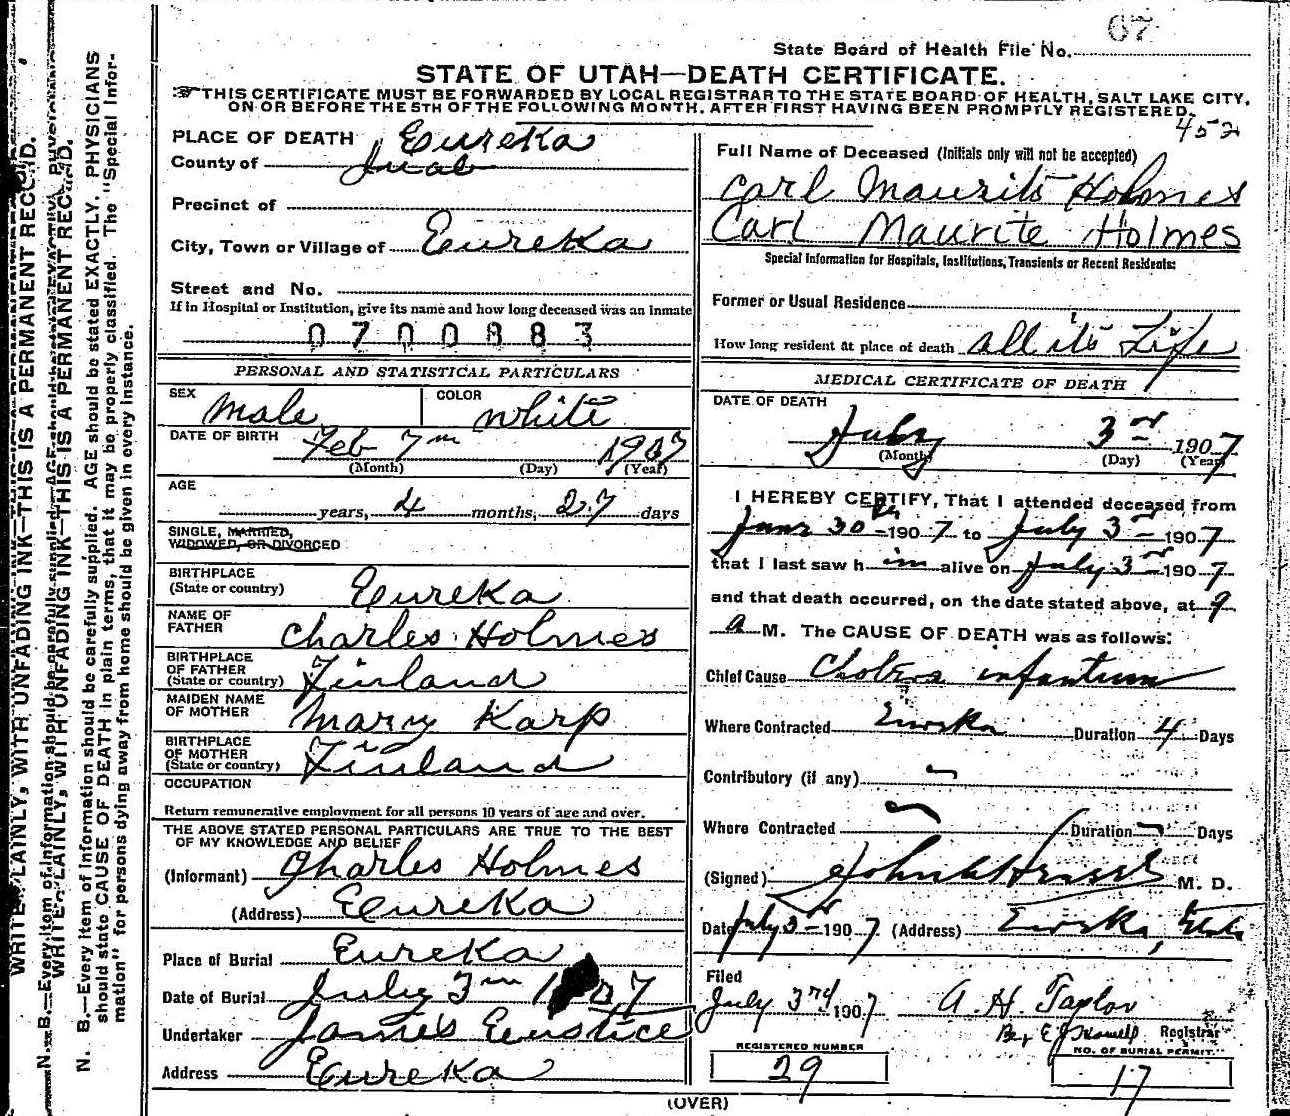 67
State Board of Health File No.
STATE OF UTAH—DEATH CERTIFICATE.
THIS CERTIFICATE MUST BE FORWARDED BY LOCAL REGISTRAR TO THE STATE BOARD OF HEALTH, SALT LAKE CITY,
ON OR BEFORE THE 5TH OF THE FOLLOWING MONTH, AFTER FIRST HAVING BEEN PROMPTLY REGISTERED.
452
PLACE OF DEATH Eureka
County of Juab
Precinct of
City, Town or Village of Eureka
Street and No.
If in Hospital or Institution, give its name and how long deceased was an inmate
0700883
PERSONAL AND STATISTICAL PARTICULARS
SEX Male COLOR White
DATE OF BIRTH Feb 7th 1907
(Month) (Day) (Year)
AGE
years, 4 months, 27 days
SINGLE, MARRIED,
WIDOWED, OR DIVORCED
BIRTHPLACE
(State or country) Eureka
NAME OF
FATHER Charles Holmes
BIRTHPLACE
OF FATHER
(State or country) Finland
MAIDEN NAME
OF MOTHER Marry Karp
BIRTHPLACE
OF MOTHER
(State or country) Finland
OCCUPATION
Return remunerative employment for all persons 10 years of age and over.
THE ABOVE STATED PERSONAL PARTICULARS ARE TRUE TO THE BEST
OF MY KNOWLEDGE AND BELIEF
(Informant) Charles Holmes
(Address) Eureka
Place of Burial Eureka
Date of Burial July 3rd 1907
Undertaker James Eustice
Address Eureka
Full Name of Deceased (Initials only will not be accepted)
Carl Maurits Holmes
Carl Maurite Holmes
Special Information for Hospitals, Institutions, Transients or Recent Residents:
Former or Usual Residence
How long resident at place of death all its Life
MEDICAL CERTIFICATE OF DEATH
DATE OF DEATH
July 3rd 1907
(Month) (Day) (Year)
I HEREBY CERTIFY, That I attended deceased from
June 30th 1907 to July 3rd 1907
that I last saw him alive on July 3rd 1907
and that death occurred, on the date stated above, at 9
a M. The CAUSE OF DEATH was as follows:
Chief Cause Cholera infantum
Where Contracted Eureka Duration 4 Days
Contributory (if any)
Where Contracted Duration Days
(Signed) John M. D.
Date July 3rd 1907 (Address) Eureka, Utah
Filed
July 3rd 1907 A. H. Taylor
By E J Registrar
REGISTERED NUMBER
29
NO. OF BURIAL PERMIT.
17
(OVER)
WRITE PLAINLY, WITH UNFADING INK—THIS IS A PERMANENT RECORD.
N. B.—Every item of information should be carefully supplied. AGE should be stated EXACTLY. PHYSICIANS
WRITE PLAINLY, WITH UNFADING INK—THIS IS A PERMANENT RECORD.
N. B.—Every item of information should be carefully supplied. AGE should be stated EXACTLY. PHYSICIANS
should state CAUSE OF DEATH in plain terms, that it may be properly classified. The "Special Infor-
mation" for persons dying away from home should be given in every instance.